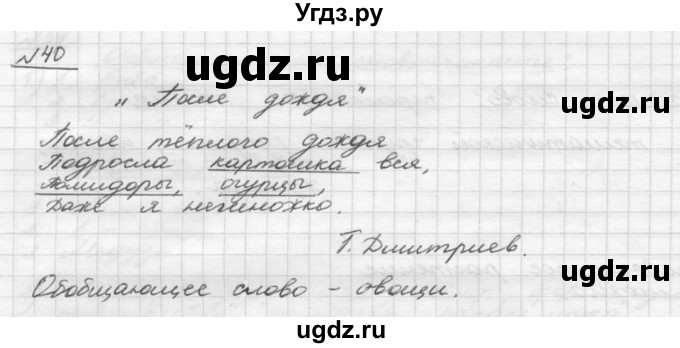 Угдз.ру
№40
ugdz.ru
ugdz.ru
„После дождя"
После тёплого дождя
Подросла картошка вся,
помидоры, огурцы,
Даже я немножко.
ugdz.ru
Т. Дмитриев.
ugdz.ru
Обобщающее слово – овощи.
ugdz.ru